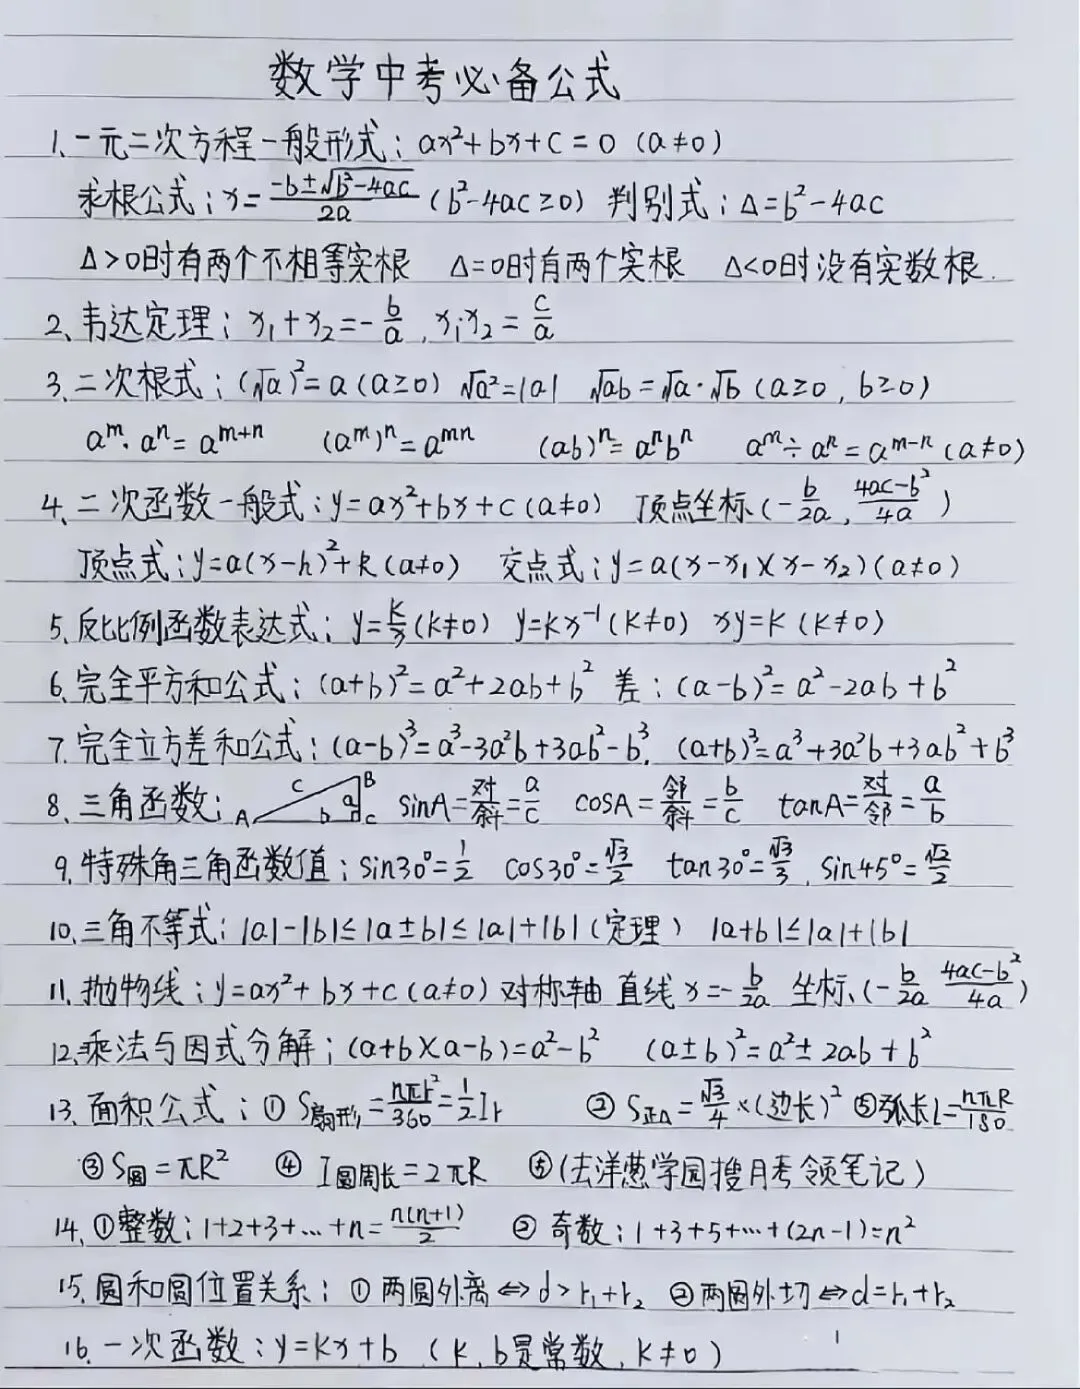 数学中考必备公式
1、一元二次方程一般形式：ax²+bx+c=0（a≠0）
求根公式：x=(-b±√(b²-4ac))/2a（b²-4ac≥0）判别式：Δ=b²-4ac
Δ>0时有两个不相等实根 Δ=0时有两个实根 Δ<0时没有实数根.
2、韦达定理：x₁+x₂=-b/a，x₁x₂=c/a
3、二次根式：(√a)²=a（a≥0） √a²=|a| √ab=√a·√b（a≥0，b≥0）
aᵐ·aⁿ=aᵐ⁺ⁿ (aᵐ)ⁿ=aᵐⁿ (ab)ⁿ=aⁿbⁿ aᵐ÷aⁿ=aᵐ⁻ⁿ（a≠0）
4、二次函数一般式：y=ax²+bx+c（a≠0） 顶点坐标(-b/2a，(4ac-b²)/4a)
顶点式：y=a(x-h)²+k（a≠0） 交点式：y=a(x-x₁)(x-x₂)（a≠0）
5、反比例函数表达式：y=k/x（k≠0） y=kx⁻¹（k≠0） xy=k（k≠0）
6、完全平方和公式：(a+b)²=a²+2ab+b² 差：(a-b)²=a²-2ab+b²
7、完全立方差和公式：(a-b)³=a³-3a²b+3ab²-b³. (a+b)³=a³+3a²b+3ab²+b³
8、三角函数： A c B a b c sinA=对/斜=a/c cosA=邻/斜=b/c tanA=对/邻=a/b
9、特殊角三角函数值：sin30°=1/2 cos30°=√3/2 tan30°=√3/3，sin45°=√2/2
10、三角不等式：|a|-|b|≤|a±b|≤|a|+|b|（定理） |a+b|≤|a|+|b|
11、抛物线：y=ax²+bx+c（a≠0）对称轴 直线x=-b/2a 坐标(-b/2a (4ac-b²)/4a)
12、乘法与因式分解：(a+b)(a-b)=a²-b² (a±b)²=a²±2ab+b²
13、面积公式：① S扇形=nπr²/360=1/2lr ② S正Δ=√3/4×(边长)² ⑤弧长l=nπR/180
③ S圆=πR² ④ l圆周长=2πR ⑤（去洋葱学园搜月考领笔记）
14、①整数：1+2+3+…+n=n(n+1)/2 ② 奇数：1+3+5+…+(2n-1)=n²
15、圆和圆位置关系：① 两圆外离⇔d>r₁+r₂ ②两圆外切⇔d=r₁+r₂
16、一次函数：y=kx+b （k，b是常数，k≠0）